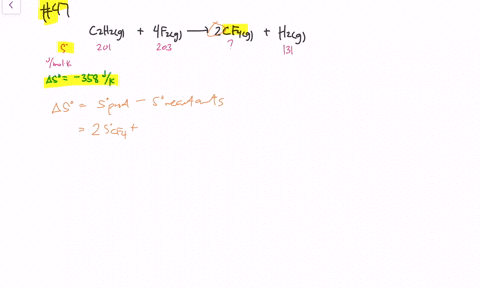 #47
C2H2(g) + 4F2(g) → 2CF4(g) + H2(g)
S° 201 203 ? 131
J/mol K
ΔS° = -358 J/K
ΔS° = S°prod - S°reactants
= 2S°CF4 +